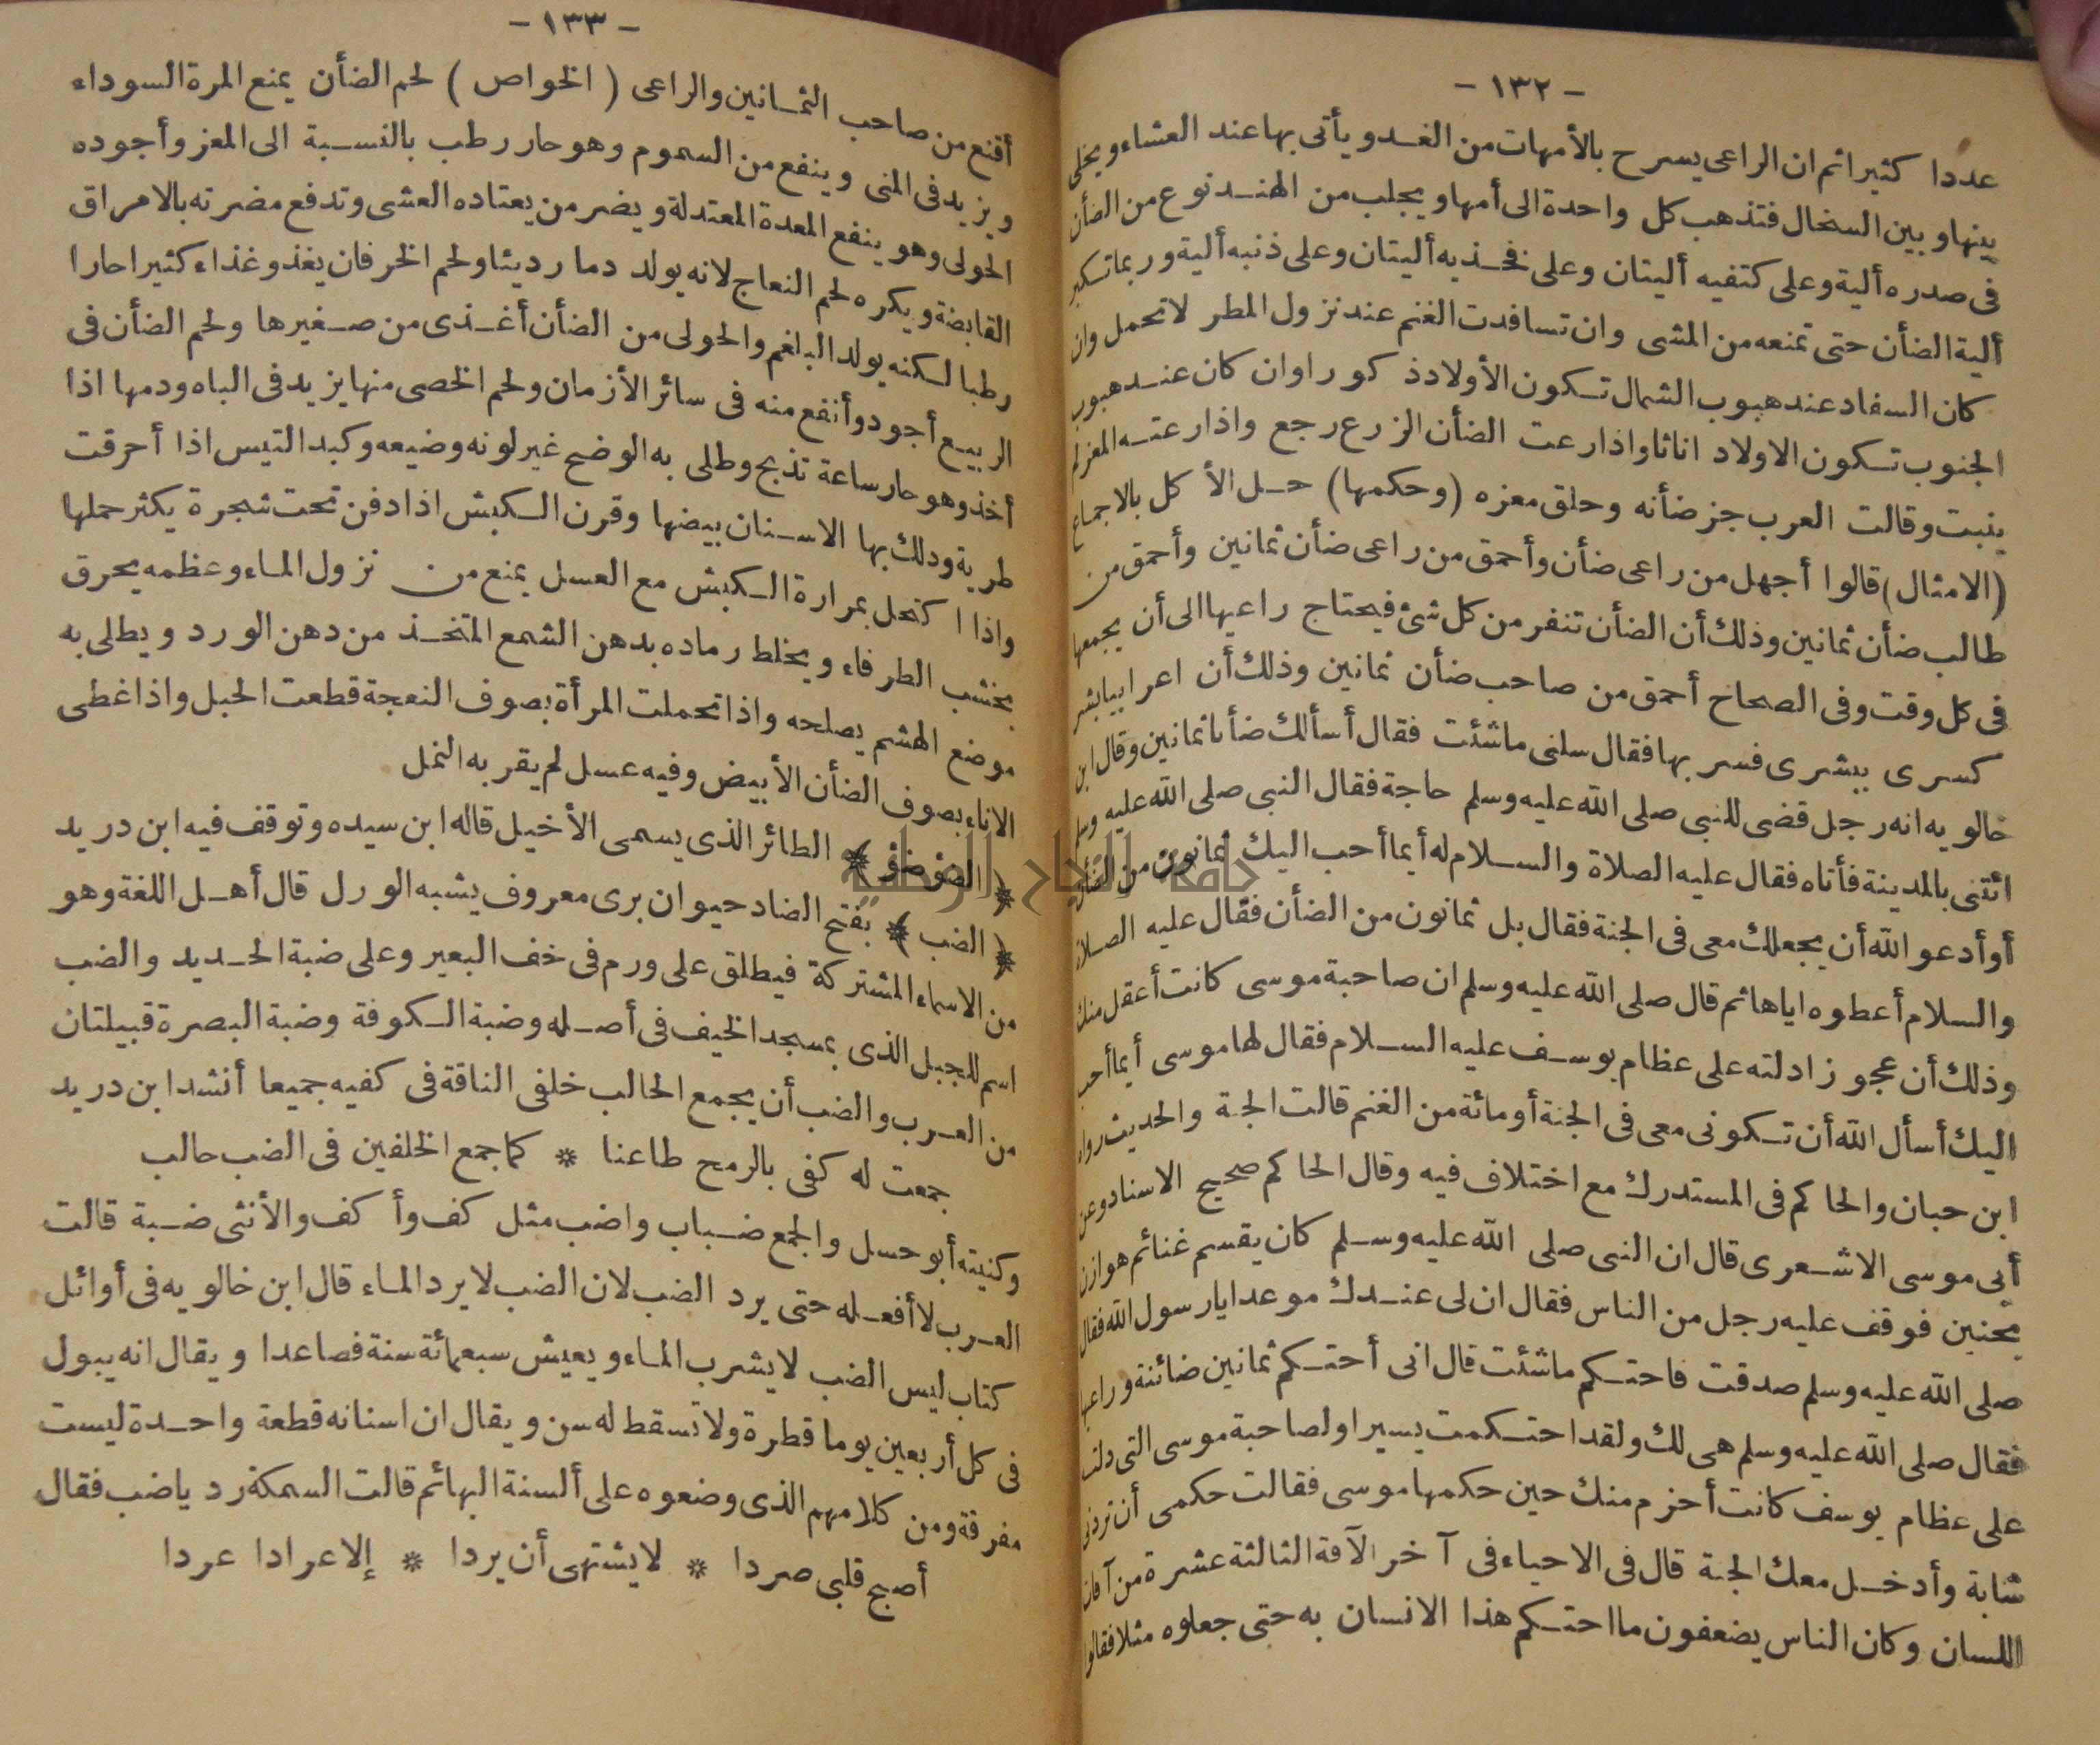 - ١٣٢ -
عددا كثيرا ثم ان الراعى يسرح بالأمهات من الغد ويأتى بها عند العشاء ويخلى
بينها وبين السخال فتذهب كل واحدة الى أمها ويجلب من الهند نوع من الضأن
فى صدره ألية وعلى كتفيه أليتان وعلى فخذيه أليتان وعلى ذنبه ألية وربما تكبر
ألية الضأن حتى تمنعه من المشى وان تسافدت الغنم عند نزول المطر لا تحمل وان
كان السفاد عند هبوب الشمال تكون الأولاد ذكورا وان كان عند هبوب
الجنوب تكون الاولاد اناثا واذا رعت الضأن الزرع رجع واذا رعته المعز لم
ينبت وقالت العرب جز ضأنه وحلق معزه (وحكمها) حل الأكل بالاجماع
(الامثال) قالوا أجهل من راعى ضأن وأحمق من راعى ضأن ثمانين وأحمق من
طالب ضأن ثمانين وذلك أن الضأن تنفر من كل شئ فيحتاج راعيها الى أن يجمعها
فى كل وقت وفى الصحاح أحمق من صاحب ضأن ثمانين وذلك أن اعرابيا بشر
كسرى ببشرى فسر بها فقال سلنى ما شئت فقال أسألك ضأنا ثمانين وقال ابن
خالويه انه رجل قضى للنبى صلى الله عليه وسلم حاجة فقال النبى صلى الله عليه وسلم
ائتنى بالمدينة فأتاه فقال عليه الصلاة والسلام له أيما أحب اليك ثمانون من الضأن
أو أدعو الله أن يجعلك معى فى الجنة فقال بل ثمانون من الضأن فقال عليه الصلاة
والسلام أعطوه اياها ثم قال صلى الله عليه وسلم ان صاحبة موسى كانت أعقل منك
وذلك أن عجوزا دلته على عظام يوسف عليه السلام فقال لها موسى أيما أحب
اليك أسأل الله أن تكونى معى فى الجنة أو مائة من الغنم قالت الجنة والحديث رواه
ابن حبان والحاكم فى المستدرك مع اختلاف فيه وقال الحاكم صحيح الاسناد وعن
أبى موسى الاشعرى قال ان النبى صلى الله عليه وسلم كان يقسم غنائم هوازن
بحنين فوقف عليه رجل من الناس فقال ان لى عندك موعدا يا رسول الله فقال
صلى الله عليه وسلم صدقت فاحتكم ما شئت قال انى أحتكم ثمانين ضائنة وراعيها
فقال صلى الله عليه وسلم هى لك ولقد احتكمت يسيرا ولصاحبة موسى التى دلته
على عظام يوسف كانت أحزم منك حين حكمها موسى فقالت حكمى أن تردنى
شابة وأدخل معك الجنة قال فى الاحياء فى آخر الآفة الثالثة عشرة من آفات
اللسان وكان الناس يضعفون ما احتكم هذا الانسان به حتى جعلوه مثلا فقالوا
- ١٣٣ -
أقنع من صاحب الثمانين والراعى (الخواص) لحم الضأن يمنع المرة السوداء
ويزيد فى المنى وينفع من السموم وهو حار رطب بالنسبة الى المعز وأجوده
الحولى وهو ينفع المعدة المعتدلة ويضر من يعتاده العشى وتدفع مضرته بالامراق
القابضة ويكره لحم النعاج لانه يولد دما رديئا ولحم الخرفان يغذو غذاء كثيرا حارا
رطبا لكنه يولد البلغم والحولى من الضأن أغذى من صغيرها ولحم الضأن فى
الربيع أجود وأنفع منه فى سائر الأزمان ولحم الخصى منها يزيد فى الباه ودمها اذا
أخذ وهو حار ساعة تذبح وطلى به الوضح غير لونه وضيعه وكبد التيس اذا أحرقت
طرية ودلك بها الاسنان بيضها وقرن الكبش اذا دفن تحت شجرة يكثر حملها
واذا اكتحل بمرارة الكبش مع العسل يمنع من نزول الماء وعظمه يحرق
بخشب الطرفاء ويخلط رماده بدهن الشمع المتخذ من دهن الورد ويطلى به
موضع الهشم يصلحه واذا تحملت المرأة بصوف النعجة قطعت الحبل واذا غطى
الاناء بصوف الضأن الأبيض وفيه عسل لم يقربه النمل
﴿ الضوضؤ ﴾ الطائر الذى يسمى الأخيل قاله ابن سيده وتوقف فيه ابن دريد
﴿ الضب ﴾ بفتح الضاد حيوان برى معروف يشبه الورل قال أهل اللغة وهو
من الاسماء المشتركة فيطلق على ورم فى خف البعير وعلى ضبة الحديد والضب
اسم للجبل الذى بمسجد الخيف فى أصله وضبة الكوفة وضبة البصرة قبيلتان
من العرب والضب أن يجمع الحالب خلفى الناقة فى كفيه جميعا أنشد ابن دريد
جمعت له كفى بالرمح طاعنا * كما جمع الخلفين فى الضب حالب
وكنيته أبو حسل والجمع ضباب واضب مثل كف وأكف والأنثى ضبة قالت
العرب لا أفعله حتى يرد الضب لان الضب لا يرد الماء قال ابن خالويه فى أوائل
كتاب ليس الضب لا يشرب الماء ويعيش سبعمائة سنة فصاعدا ويقال انه يبول
فى كل أربعين يوما قطرة ولا تسقط له سن ويقال ان اسنانه قطعة واحدة ليست
مفرقة ومن كلامهم الذى وضعوه على ألسنة البهائم قالت السمكة رد يا ضب فقال
أصبح قلبى صردا * لا يشتهى أن يردا * إلا عرادا عردا
جامعة النجاح الوطنية